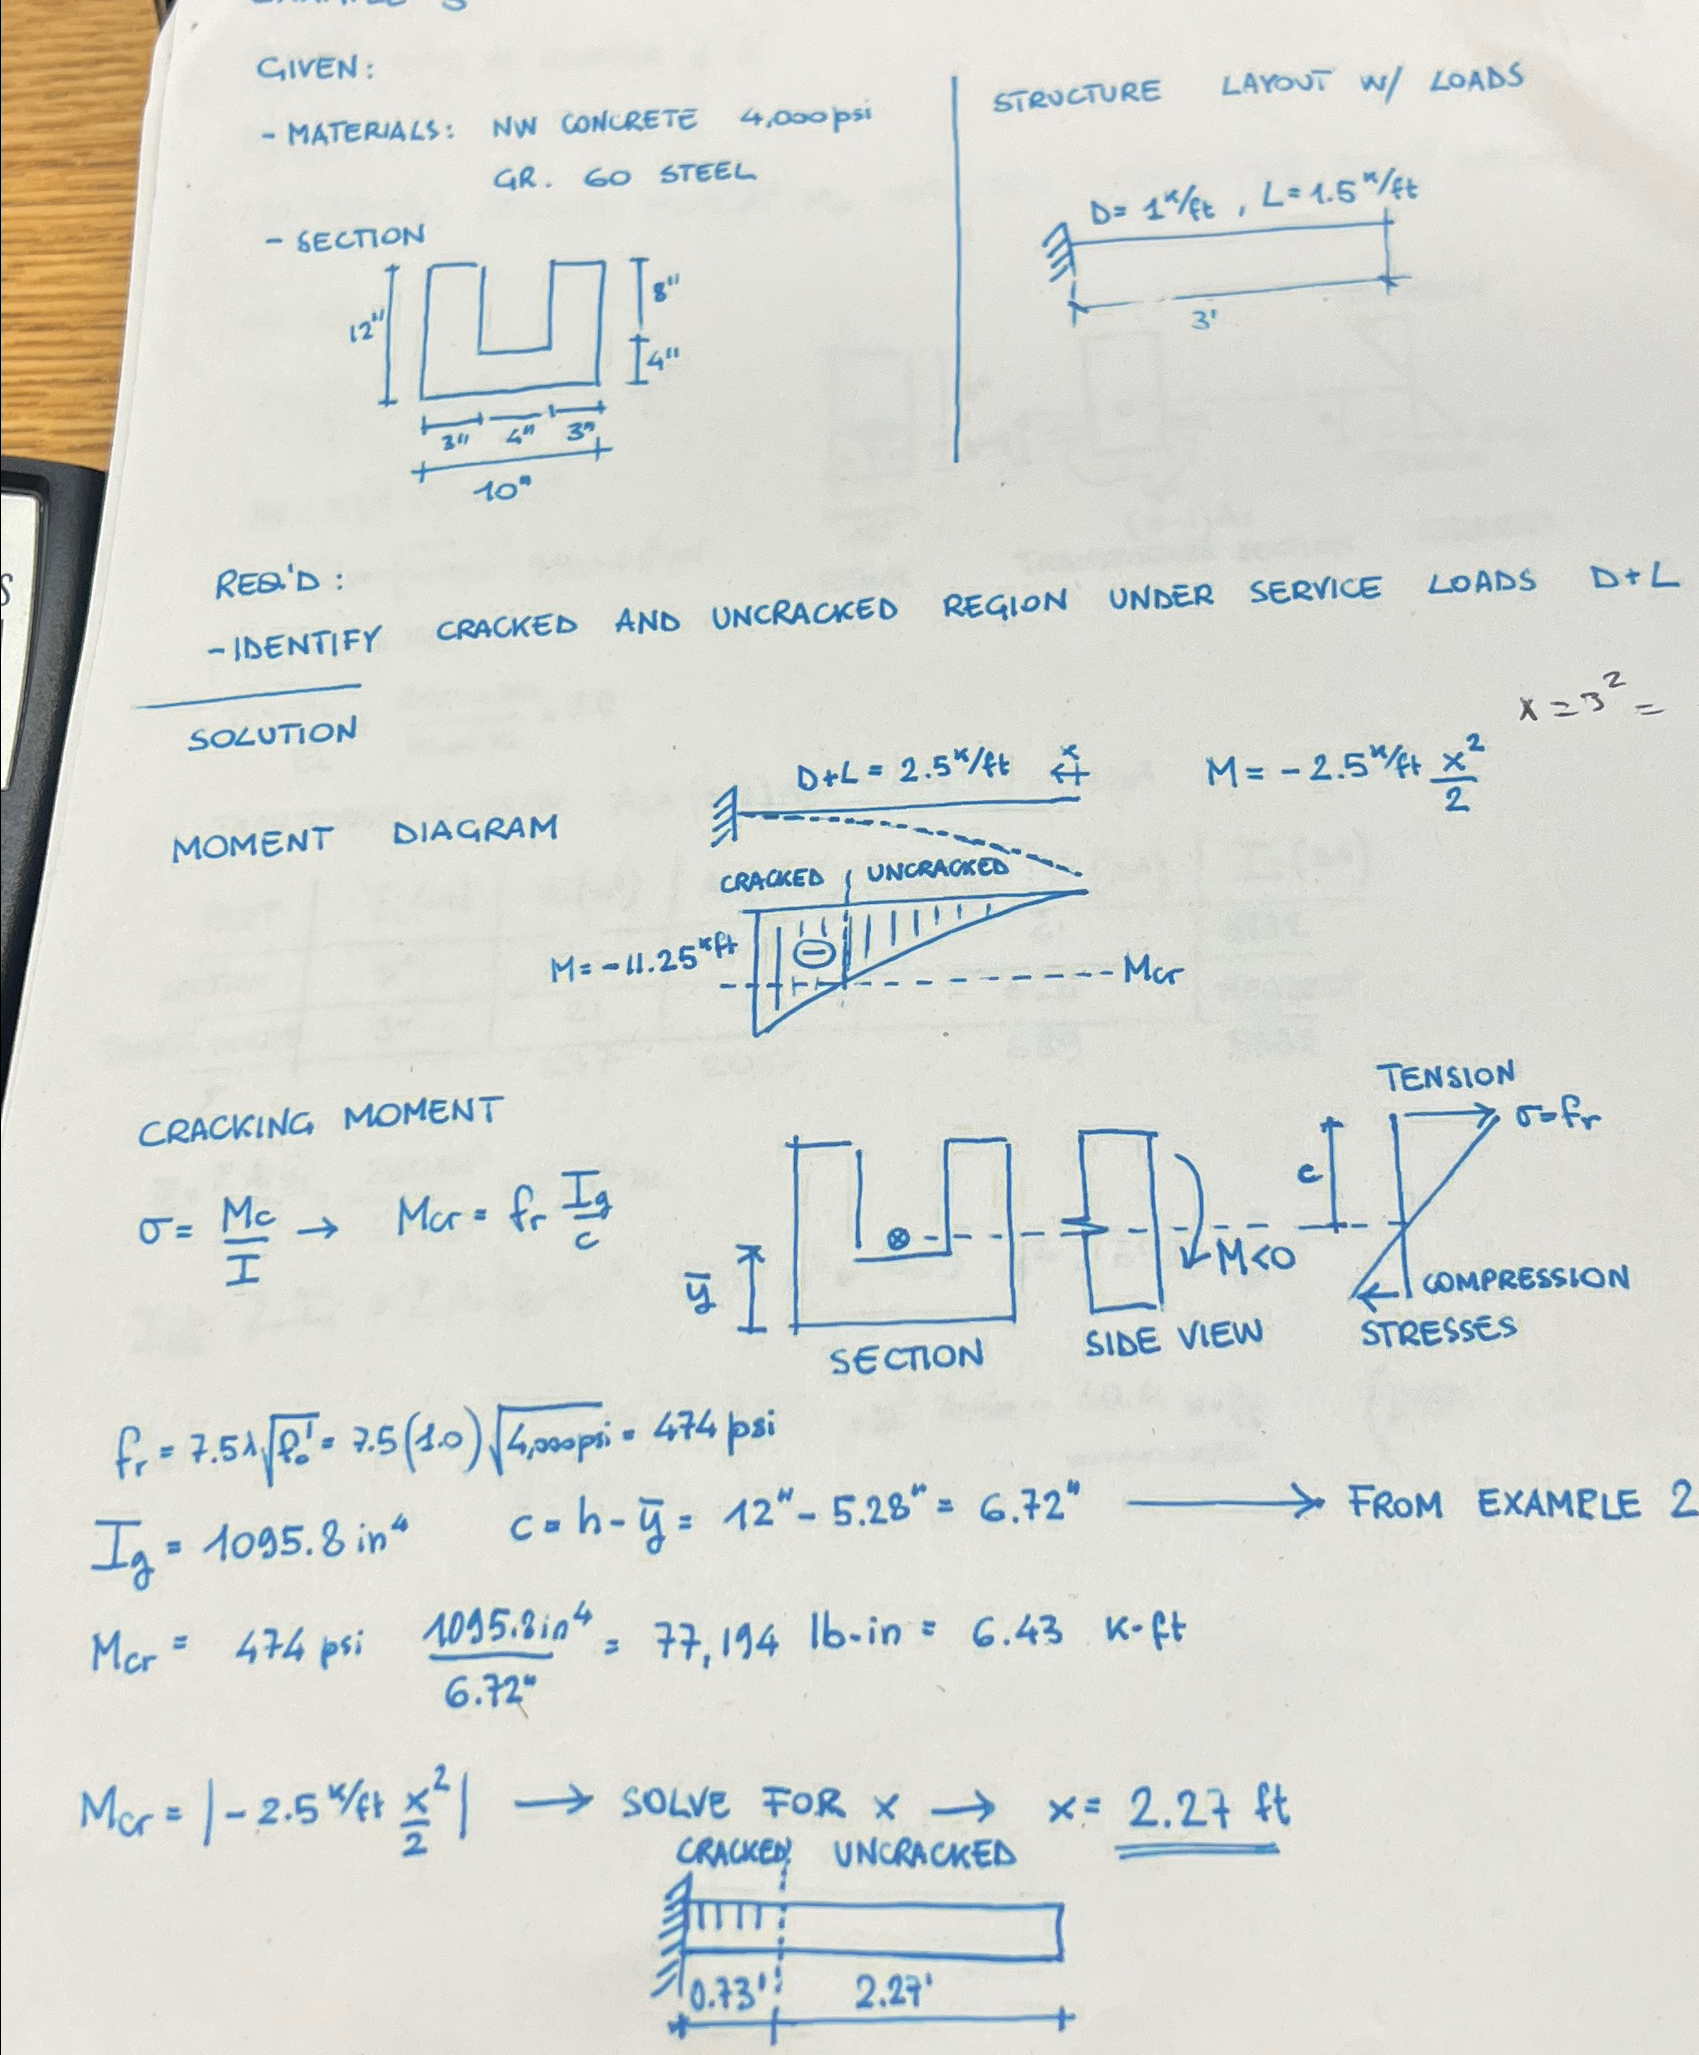 EXAMPLE 3
GIVEN:
- MATERIALS: NW CONCRETE 4,000 psi
GR. 60 STEEL
- SECTION
12"
8"
4"
3" 4" 3"
10"
STRUCTURE LAYOUT W/ LOADS
D= 1ᵏ/ft , L= 1.5ᵏ/ft
3'
REQ'D:
- IDENTIFY CRACKED AND UNCRACKED REGION UNDER SERVICE LOADS D+L
SOLUTION
x = 3² =
MOMENT DIAGRAM
D+L = 2.5ᵏ/ft x
M = - 2.5ᵏ/ft x²/2
CRACKED UNCRACKED
M= -11.25ᵏft
⊖
Mcr
CRACKING MOMENT
σ = Mc/I → Mcr = fr Ig/c
ȳ
SECTION
M<0
SIDE VIEW
TENSION
σ=fr
c
COMPRESSION
STRESSES
fr = 7.5λ√fc' = 7.5(1.0)√4,000psi = 474 psi
Ig = 1095.8 in⁴ c = h - ȳ = 12" - 5.28" = 6.72" → FROM EXAMPLE 2
Mcr = 474 psi 1095.8in⁴/6.72" = 77,194 lb-in = 6.43 K-ft
Mcr = |- 2.5ᵏ/ft x²/2| → SOLVE FOR x → x= 2.27 ft
CRACKED UNCRACKED
0.73' 2.27'